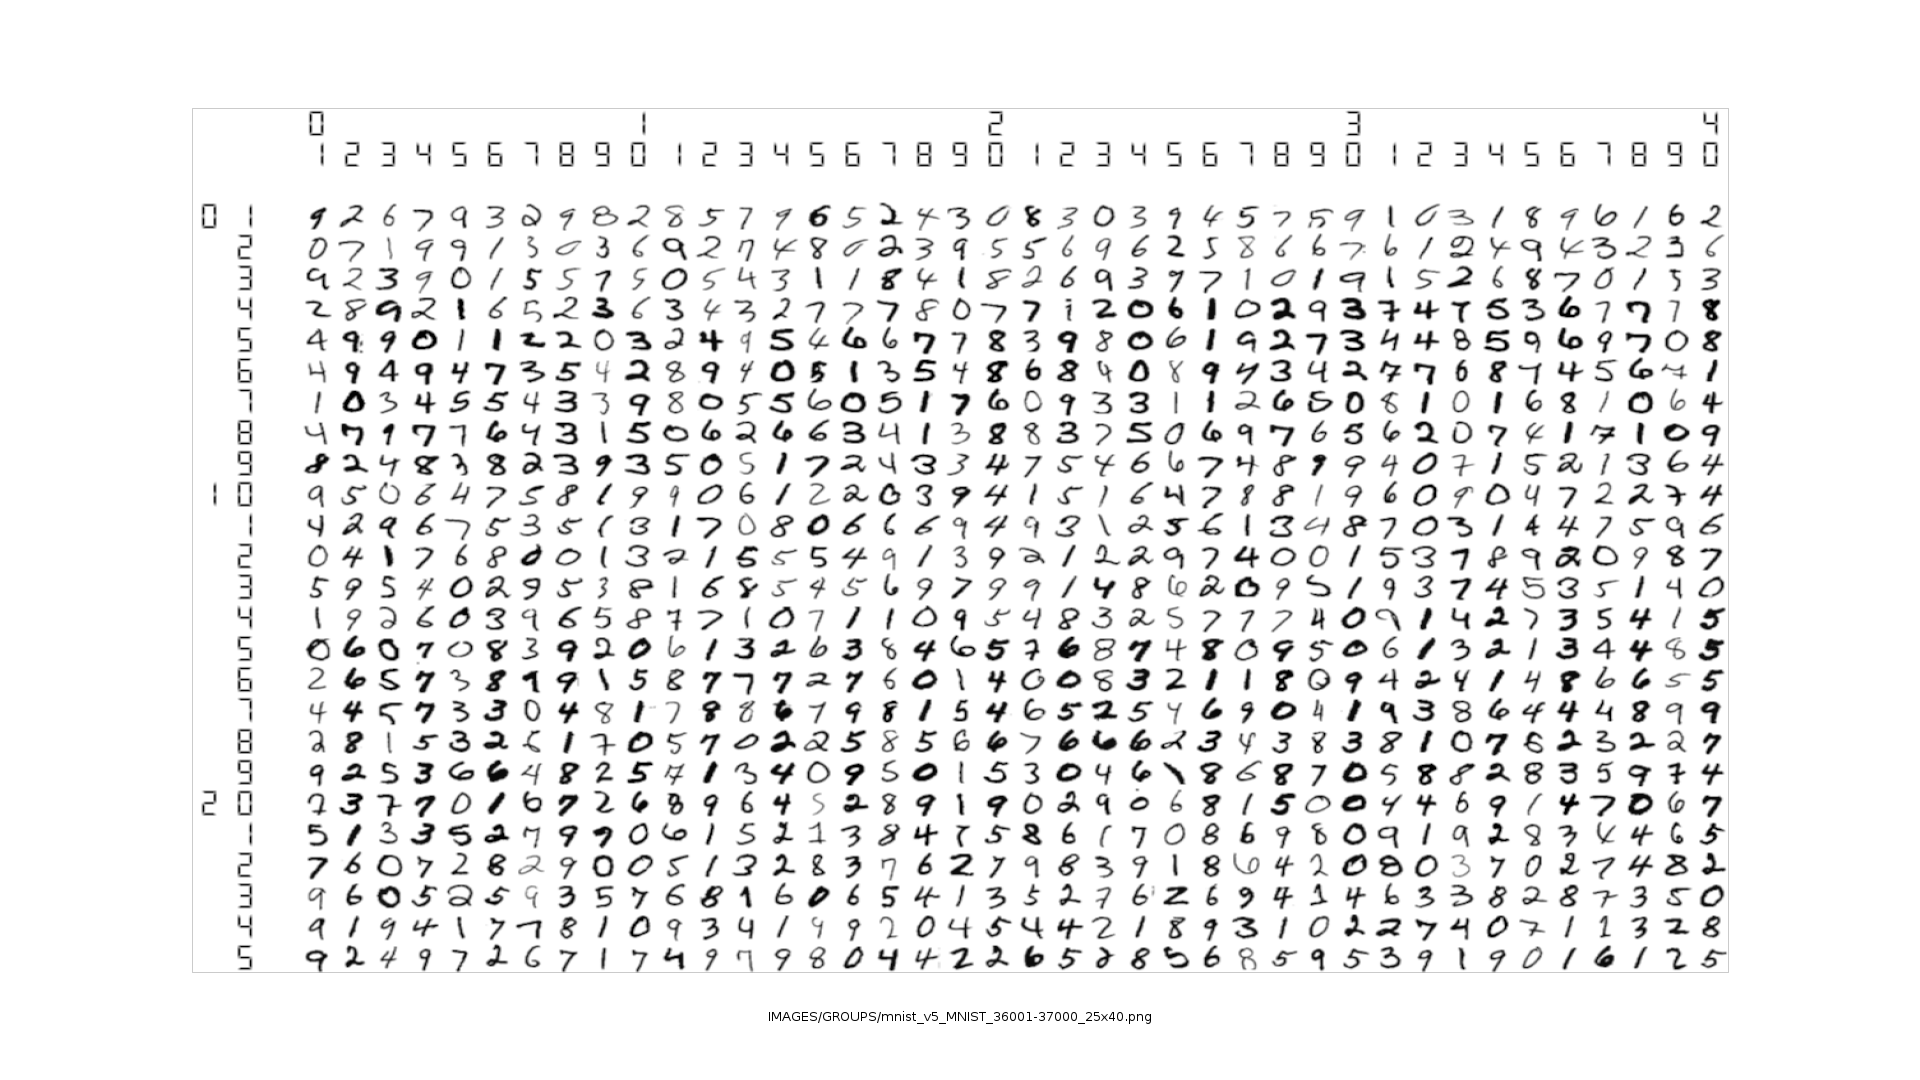 0 1 2 3 4
1 2 3 4 5 6 7 8 9 0 1 2 3 4 5 6 7 8 9 0 1 2 3 4 5 6 7 8 9 0 1 2 3 4 5 6 7 8 9 0
0 1 9 2 6 7 9 3 2 9 8 2 8 5 7 9 6 5 2 4 3 0 8 3 0 3 9 4 5 7 5 9 1 0 3 1 8 9 6 1 6 2
2 0 7 1 9 9 1 3 0 3 6 9 2 7 4 8 0 2 3 9 5 5 6 9 6 2 5 8 6 6 7 6 1 2 4 9 4 3 2 3 6
3 9 2 3 9 0 1 5 5 7 5 0 5 4 3 1 1 8 4 1 8 2 6 9 3 7 7 1 0 1 9 1 5 2 6 8 7 0 1 5 3
4 2 8 9 2 1 6 5 2 3 6 3 4 3 2 7 7 7 8 0 7 7 1 2 0 6 1 0 2 9 3 7 4 7 5 3 6 7 7 7 8
5 4 9 9 0 1 1 2 2 0 3 2 4 9 5 4 6 6 7 7 8 3 9 8 0 6 1 9 2 7 3 4 4 8 5 9 6 9 7 0 8
6 4 9 4 9 4 7 3 5 4 2 8 9 4 0 5 1 3 5 4 8 6 8 4 0 8 9 4 3 4 2 7 7 6 8 7 4 5 6 7 1
7 1 0 3 4 5 5 4 3 3 9 8 0 5 5 6 0 5 1 7 6 0 9 3 3 1 1 2 6 5 0 8 1 0 1 6 8 1 0 6 4
8 4 7 9 7 7 6 4 3 1 5 0 6 2 6 6 3 4 1 3 8 8 3 7 5 0 6 9 7 6 5 6 2 0 7 4 1 7 1 0 9
9 8 2 4 8 3 8 2 3 9 3 5 0 5 1 7 2 4 3 3 4 7 5 4 6 6 7 4 8 9 9 4 0 7 1 5 2 1 3 6 4
1 0 9 5 0 6 4 7 5 8 1 9 9 0 6 1 2 2 0 3 9 4 1 5 1 6 4 7 8 8 1 9 6 0 9 0 4 7 2 2 7 4
1 4 2 9 6 7 5 3 5 1 3 1 7 0 8 0 6 6 6 9 4 9 3 1 2 5 6 1 3 4 8 7 0 3 1 4 4 7 5 9 6
2 0 4 1 7 6 8 0 0 1 3 2 1 5 5 5 4 9 1 3 9 2 1 2 2 9 7 4 0 0 1 5 3 7 8 9 2 0 9 8 7
3 5 9 5 4 0 2 9 5 3 8 1 6 8 5 4 5 6 9 7 9 9 1 4 8 6 2 0 9 5 1 9 3 7 4 5 3 5 1 4 0
4 1 9 2 6 0 3 9 6 5 8 7 7 1 0 7 1 1 0 9 5 4 8 3 2 5 7 7 7 4 0 9 1 4 2 7 3 5 4 1 5
5 0 6 0 7 0 8 3 9 2 0 6 1 3 2 6 3 8 4 6 5 7 6 8 7 4 8 0 9 5 0 6 1 3 2 1 3 4 4 8 5
6 2 6 5 7 3 8 9 9 1 5 8 7 7 7 2 7 6 0 1 4 0 0 8 3 2 1 1 8 0 9 4 2 4 1 4 8 6 6 5 5
7 4 4 5 7 3 3 0 4 8 1 7 8 8 6 7 9 8 1 5 4 6 5 2 5 4 6 9 0 4 1 9 3 8 6 4 4 4 8 9 9
8 2 8 1 5 3 2 6 1 7 0 5 7 0 2 2 5 8 5 6 6 7 6 6 6 2 3 4 3 8 3 8 1 0 7 6 2 3 2 2 7
9 9 2 5 3 6 6 4 8 2 5 7 1 3 4 0 9 5 0 1 5 3 0 4 6 1 8 6 8 7 0 5 8 8 2 8 3 5 9 7 4
2 0 7 3 7 7 0 1 6 7 2 6 8 9 6 4 5 2 8 9 1 9 0 2 9 0 6 8 1 5 0 0 4 4 6 9 1 4 7 0 6 7
1 5 1 3 3 5 2 7 9 9 0 6 1 5 2 1 3 8 4 7 5 8 6 1 7 0 8 6 9 8 0 9 1 9 2 8 3 4 4 6 5
2 7 6 0 7 2 8 2 9 0 0 5 1 3 2 8 3 7 6 2 7 9 8 3 9 1 8 6 4 2 0 8 0 3 7 0 2 7 4 8 2
3 9 6 0 5 2 5 9 3 5 7 6 8 1 6 0 6 5 4 1 3 5 2 7 6 2 6 9 4 1 4 6 3 3 8 2 8 7 3 5 0
4 9 1 9 4 1 7 7 8 1 0 9 3 4 1 9 9 2 0 4 5 4 4 2 1 8 9 3 1 0 2 2 7 4 0 7 1 1 3 2 8
5 9 2 4 9 7 2 6 7 1 7 4 9 7 9 8 0 4 4 2 2 6 5 2 8 5 6 8 5 9 5 3 9 1 9 0 1 6 1 2 5
IMAGES/GROUPS/mnist_v5_MNIST_36001-37000_25x40.png